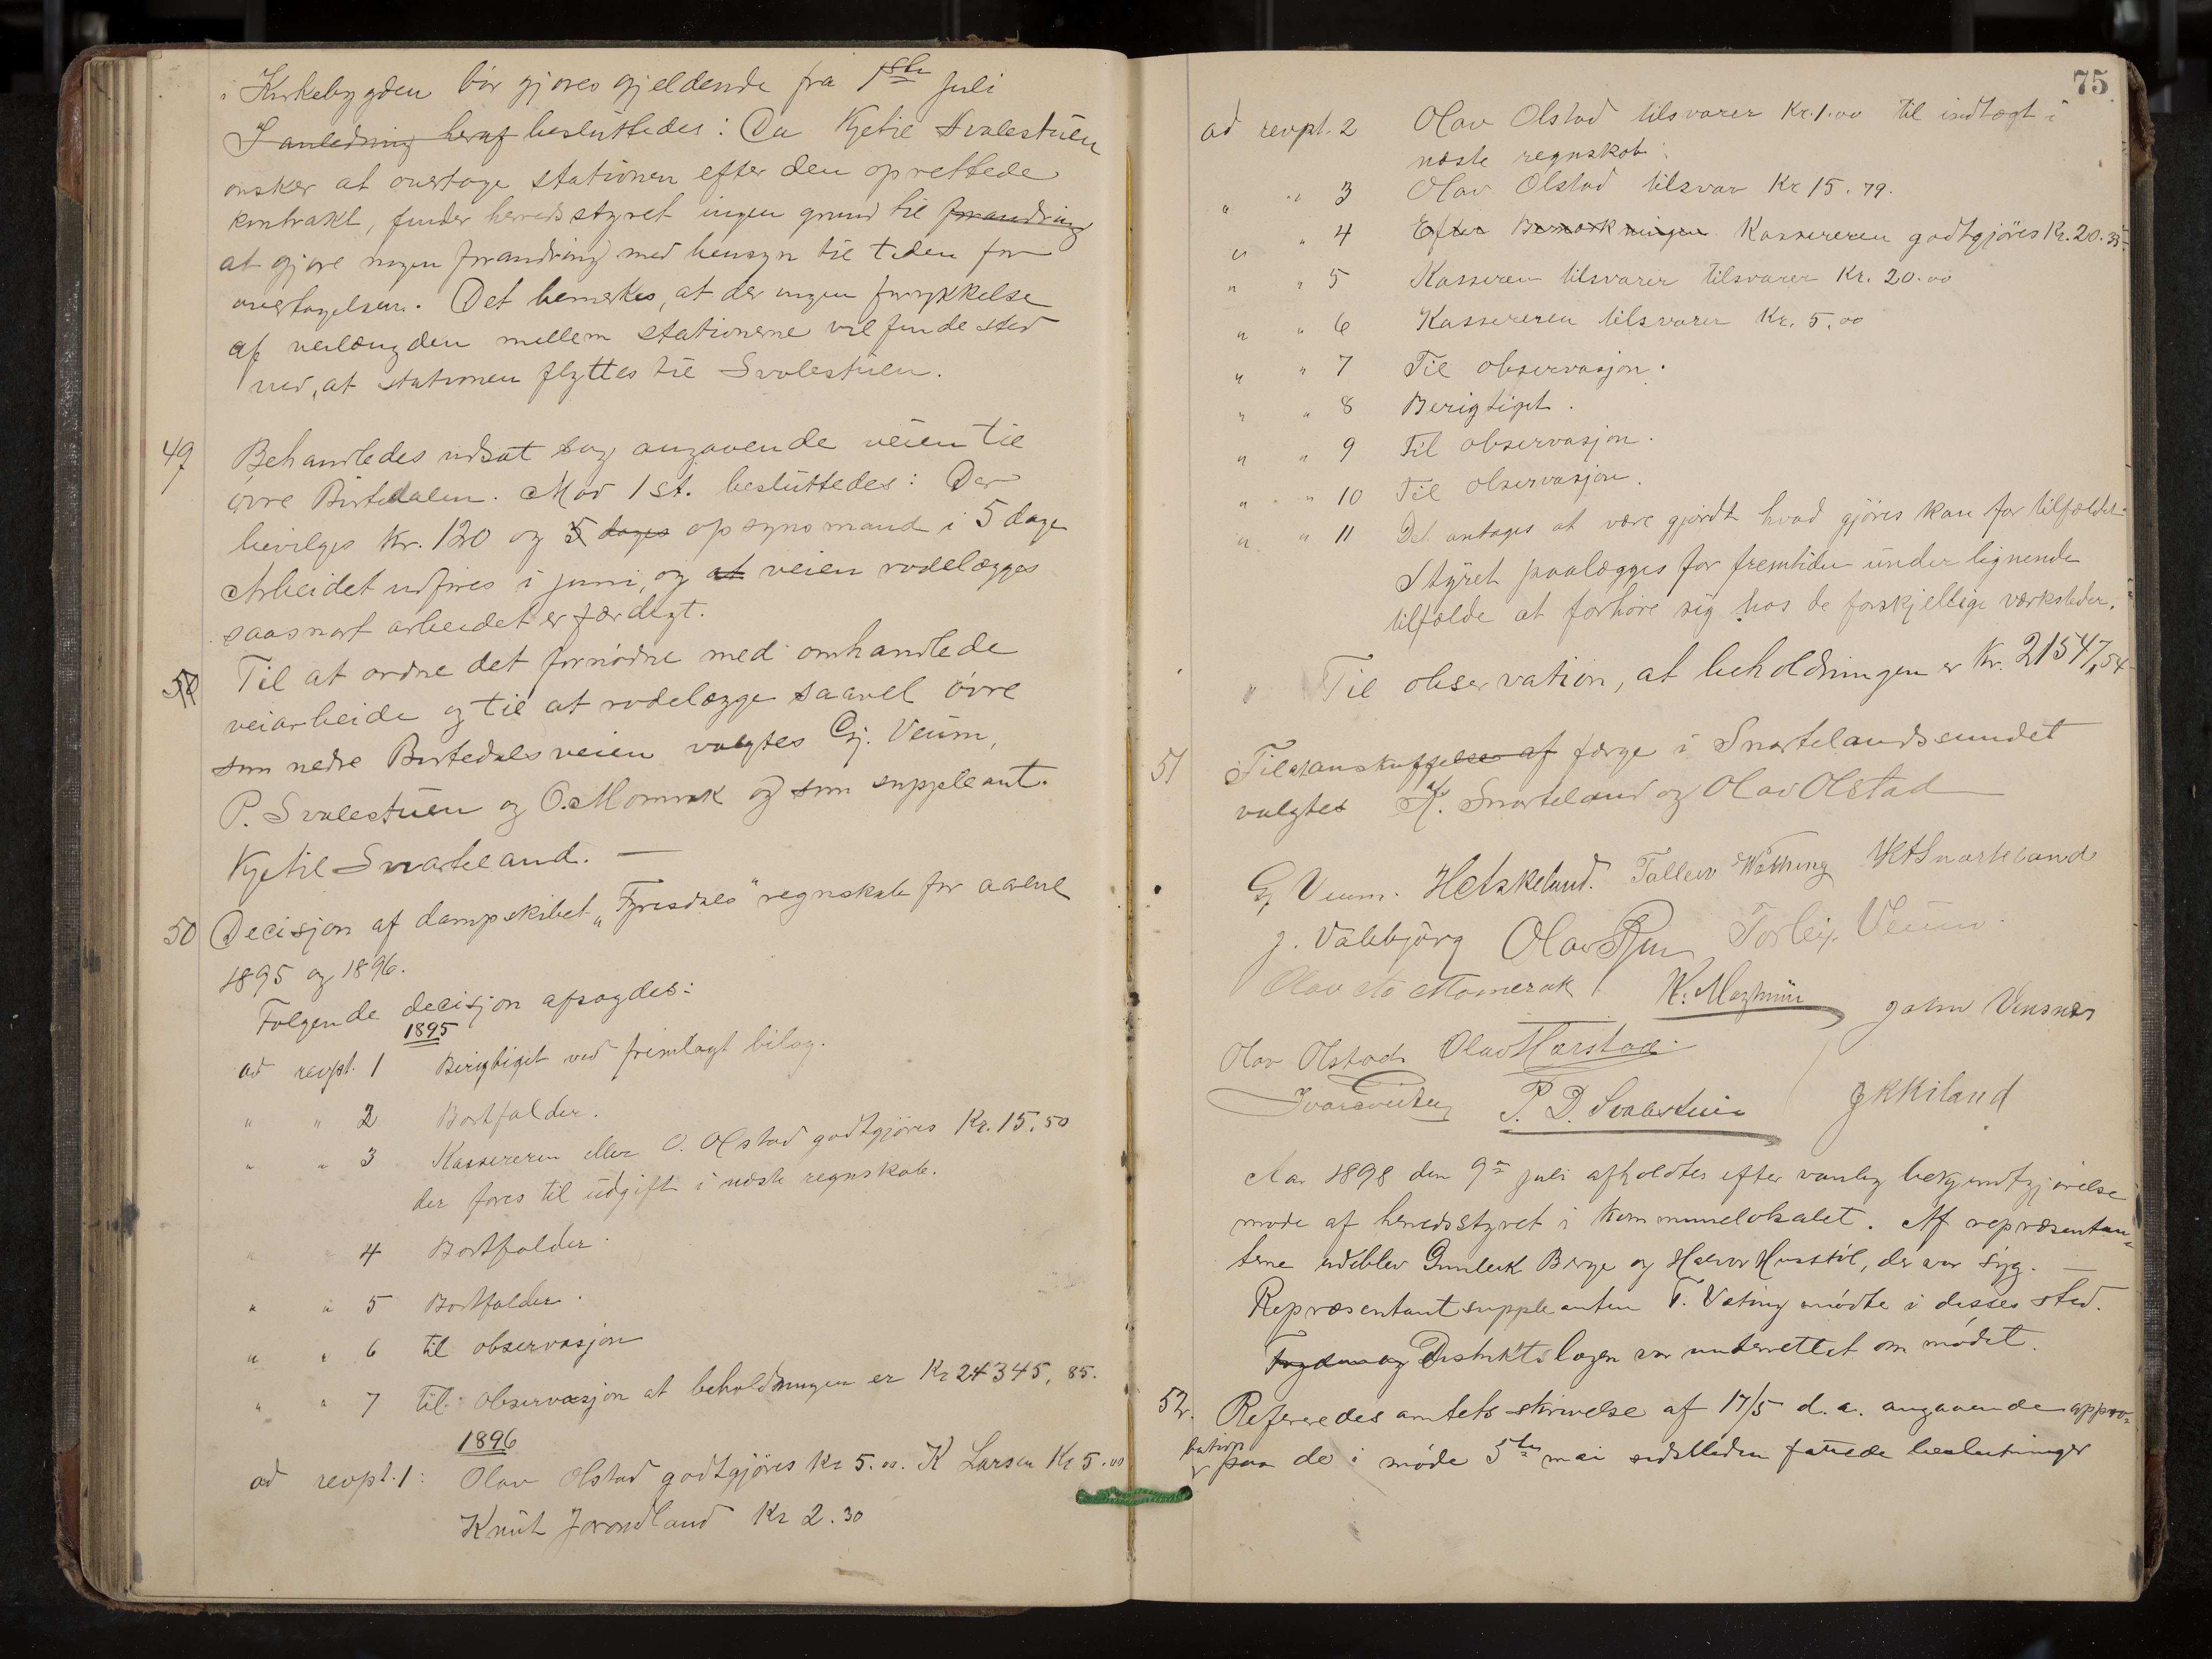 i Kirkebygden bör gjöres gjeldende fra 1ste Juli
I anledning heraf besluttedes: Da Kjetil Svalestuen
önsker at overtage stationen efter den oprettede
kontrakt, finder herredsstyret ingen grund til forandring
at gjöre nogen forandring med hensyn til tiden for
overtagelsen. Det bemerkes, at der ingen forrykkelse
af veilængden mellem stationerne vil finde sted
ved, at stationen flyttes til Svalestuen.
49 Behandledes udsat sag angaaende veien til
övre Birtedalen. Mod 1 st. besluttedes: Der
bevilges Kr. 120 og 5 dages opsynsmand i 5 dage
Arbeidet udföres i juni, og at veien rodelægges
saasnart arbeidet er færdigt.
50 Til at ordne det fornödne med omhandlede
veiarbeide og til at rodelægge saavel övre
som nedre Birtedalsveien valgtes Gj. Veum,
P. Svalestuen og O. Momrak og som suppleant
Kjetil Snarteland. —
50 Decisjon af dampskibet "Fyresdals" regnskab for aarene
1895 og 1896.
Fölgende decisjon afsagdes:
1895
ad revpt. 1 Berigtiget ved fremlagt bilag.
" " 2 Bortfalder.
" " 3 Kassereren eller O. Olstad godtgjöres Kr. 15.50
der föres til udgift i næste regnskab.
" " 4 Bortfalder.
" " 5 Bortfalder.
" " 6 til observasjon
" " 7 til observasjon at beholdningen er Kr 24345, 85.
1896
ad revpt. 1: Olav Olstad godtgjöres Kr 5.00. K Larsen Kr 5.00
Knut Jorondland Kr 2.30
75
ad revpt. 2 Olav Olstad tilsvarer Kr. 1.00 til indtægt i
næste regnskab.
" " 3 Olav Olstad tilsvar Kr 15.79.
" " 4 Efter Bemærkningen Kassereren godtgjöres Kr. 20.35
" " 5 Kasseren tilsvarer tilsvarer Kr. 20.00
" " 6 Kassereren tilsvarer Kr. 5.00
" " 7 Til observasjon.
" " 8 Berigtiget.
" " 9 Til observasjon.
" " 10 Til observasjon.
" " 11 Det antages at være gjordt hvad gjöres kan for tilfældet
Styret paalægges for fremtiden under lignende
tilfælde at forhöre sig hos de forskjellige værksteder.
" Til observation, at beholdningen er Kr. 21547,54
51 Til at anskaffelse af færge i Snartelandssundet
valgtes K. Snarteland og Olav Olstad
Gj Veum. H Hetskeland. Talleiv Watting KASnarteland
J. Valebjörg Olav Torleif Veum
Olav Momrak K. John Vensnes
Olav Olstad Olav Harstad
P. D. Svalestuen J K Kiland
Aar 1898 den 9de juli afholdtes efter vanlig bekjendtgjörelse
möde af herredsstyret i kommunelokalet. Af repræsentan-
terne udeblev Gunleik Berge og Halvor Husstöl, der var syg. —
Repræsentantsuppleanten T. Vating mödte i disses sted.
Fogden og Distriktslægen var underrettet om mödet.
52. Refereredes amtets skrivelse af 17/5 d. a. angaaende appro-
bation paa de i möde 5te mai sidstleden fattede beslutninger